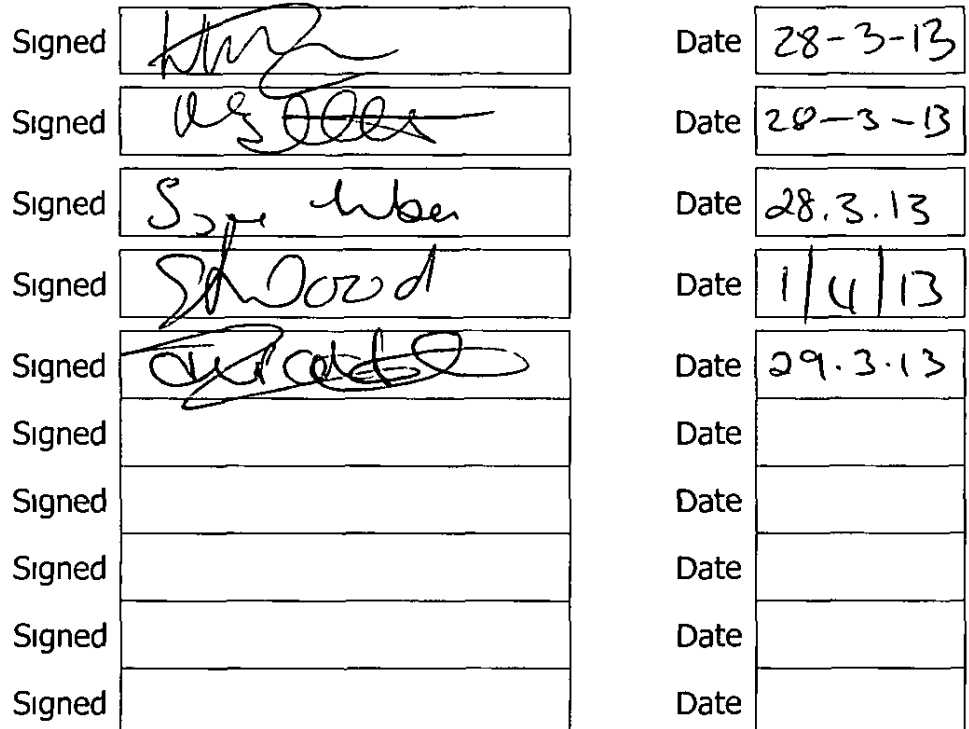 Signed Date 28-3-13
Signed Date 28-3-13
Signed Date 28.3.13
Signed Date 1/4/13
Signed Date 29.3.13
Signed Date
Signed Date
Signed Date
Signed Date
Signed Date